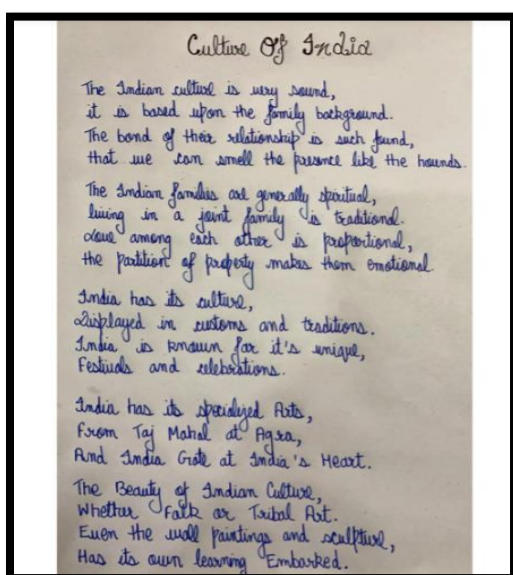 Culture Of India
The Indian culture is very sound,
it is based upon the family background.
The bond of their relationship is such found,
that we can smell the presence like the hounds.
The Indian families are generally spiritual,
living in a joint family is traditional.
Love among each other is proportional,
the partition of property makes them emotional.
India has its culture,
Displayed in customs and traditions.
India is known for it's unique,
Festivals and celebrations.
India has its specialized Arts,
From Taj Mahal at Agra,
And India Gate at India's Heart.
The Beauty of Indian Culture,
Whether Folk or Tribal Art.
Even the wall paintings and sculpture,
Has its own learning Embarked.